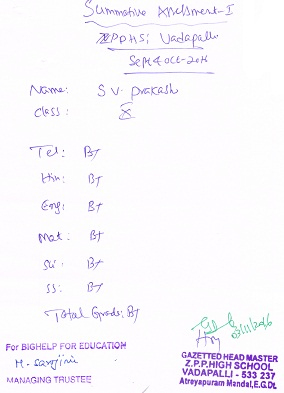 Summative Assessment-I
ZPPHS, Vadapalli
Sept & Oct-2016
Name: S V. Prakash
Class: X
Tel: B1
Hin: B1
Eng: B1
Mat: B1
Sci: B1
SS: B1
Total Grade: B1
03/11/2016
For BIGHELP FOR EDUCATION
MANAGING TRUSTEE
GAZETTED HEAD MASTER
Z.P.P.HIGH SCHOOL
VADAPALLI - 533 237
Atreyapuram Mandal, E.G.Dt.